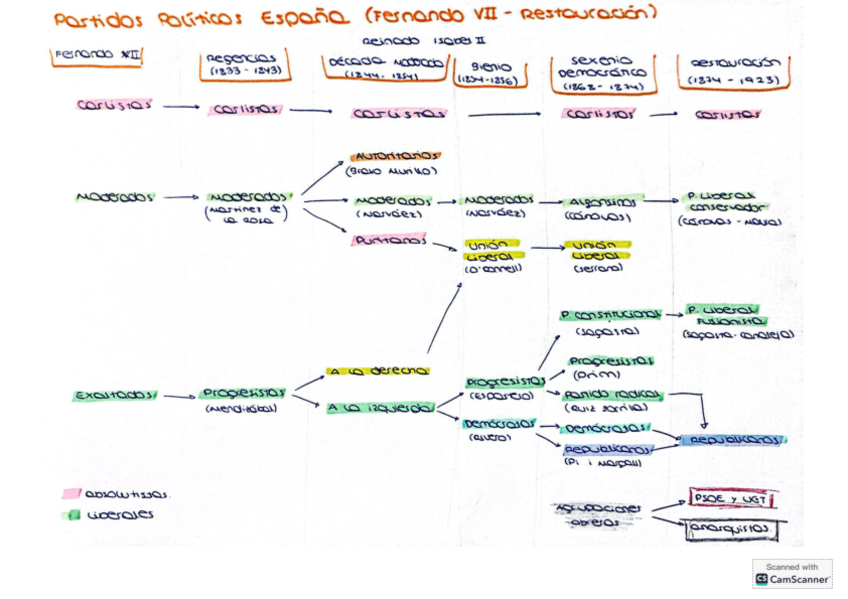 Partidos Políticos España (Fernando VII - Restauración)
Reinado Isabel II
Fernando VII
Regencias
(1833 - 1843)
Década Moderada
(1844 - 1854)
Bienio
(1854-1856)
Sexenio
Democrático
(1868 - 1874)
Restauración
(1874 - 1923)
Carlistas
Carlistas
Carlistas
Carlistas
Carlistas
Autoritarios
(Bravo Murillo)
Moderados
Moderados
(Martínez de
la Rosa)
Moderados
(Narváez)
Moderados
(Narváez)
Alfonsinos
(Cánovas)
P. Liberal
conservador
(Cánovas - Maura)
Puritanos
Unión
Liberal
(O'Donnell)
Unión
Liberal
(Serrano)
P. constitucional
(Sagasta)
P. Liberal
Fusionista
(Sagasta-Canalejas)
A la derecha
Exaltados
Progresistas
(Mendizábal)
A la izquierda
Progresistas
(Espartero)
Progresistas
(Prim)
Partido radical
(Ruiz Zorrilla)
Demócratas
(Rivero)
Demócratas
Republicanos
(Pi i Margall)
Republicanos
absolutistas
Liberales
Agrupaciones
obreras
PSOE y UGT
anarquistas
Scanned with
CS CamScanner